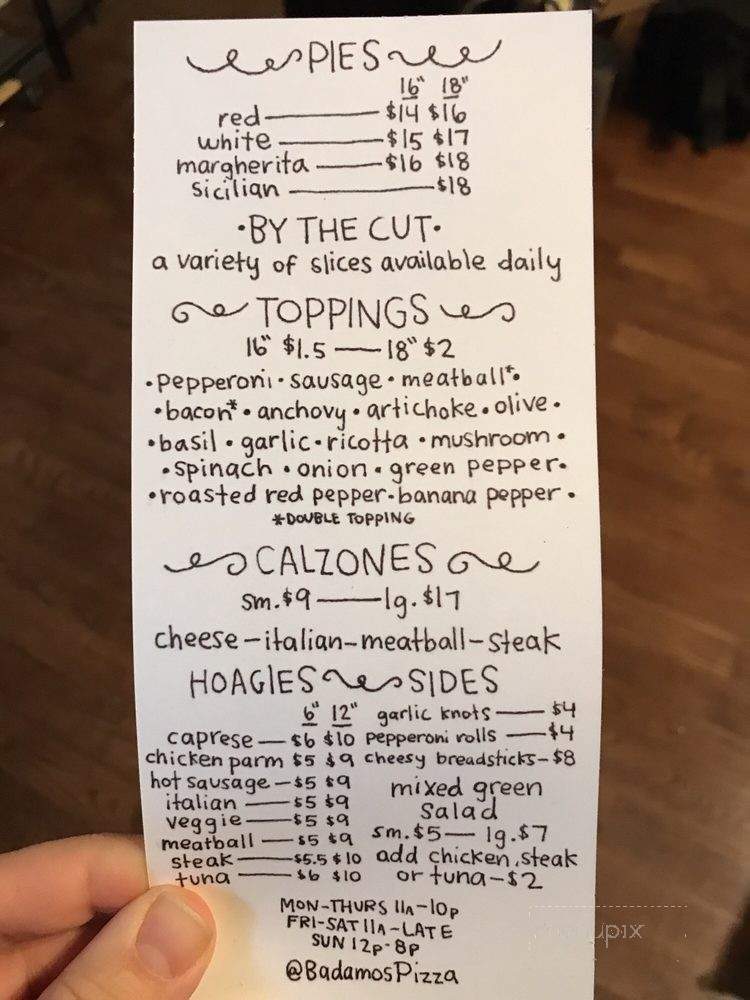 PIES
16" 18"
red — $14 $16
white — $15 $17
margherita — $16 $18
sicilian — $18
•BY THE CUT•
a variety of slices available daily
TOPPINGS
16" $1.5 — 18" $2
•pepperoni•sausage•meatball*•
•bacon*•anchovy•artichoke•olive•
•basil•garlic•ricotta•mushroom•
•spinach•onion•green pepper•
•roasted red pepper•banana pepper•
*DOUBLE TOPPING
CALZONES
sm.$9 — lg.$17
cheese-italian-meatball-steak
HOAGIES SIDES
6" 12"
caprese — $6 $10
chicken parm $5 $9
hot sausage — $5 $9
italian — $5 $9
veggie — $5 $9
meatball — $5 $9
steak — $5.5 $10
tuna — $6 $10
garlic knots — $4
pepperoni rolls — $4
cheesy breadsticks - $8
mixed green
salad
sm.$5 — lg.$7
add chicken, steak
or tuna - $2
MON-THURS 11A-10P
FRI-SAT 11A-LATE
SUN 12P-8P
@BadamosPizza